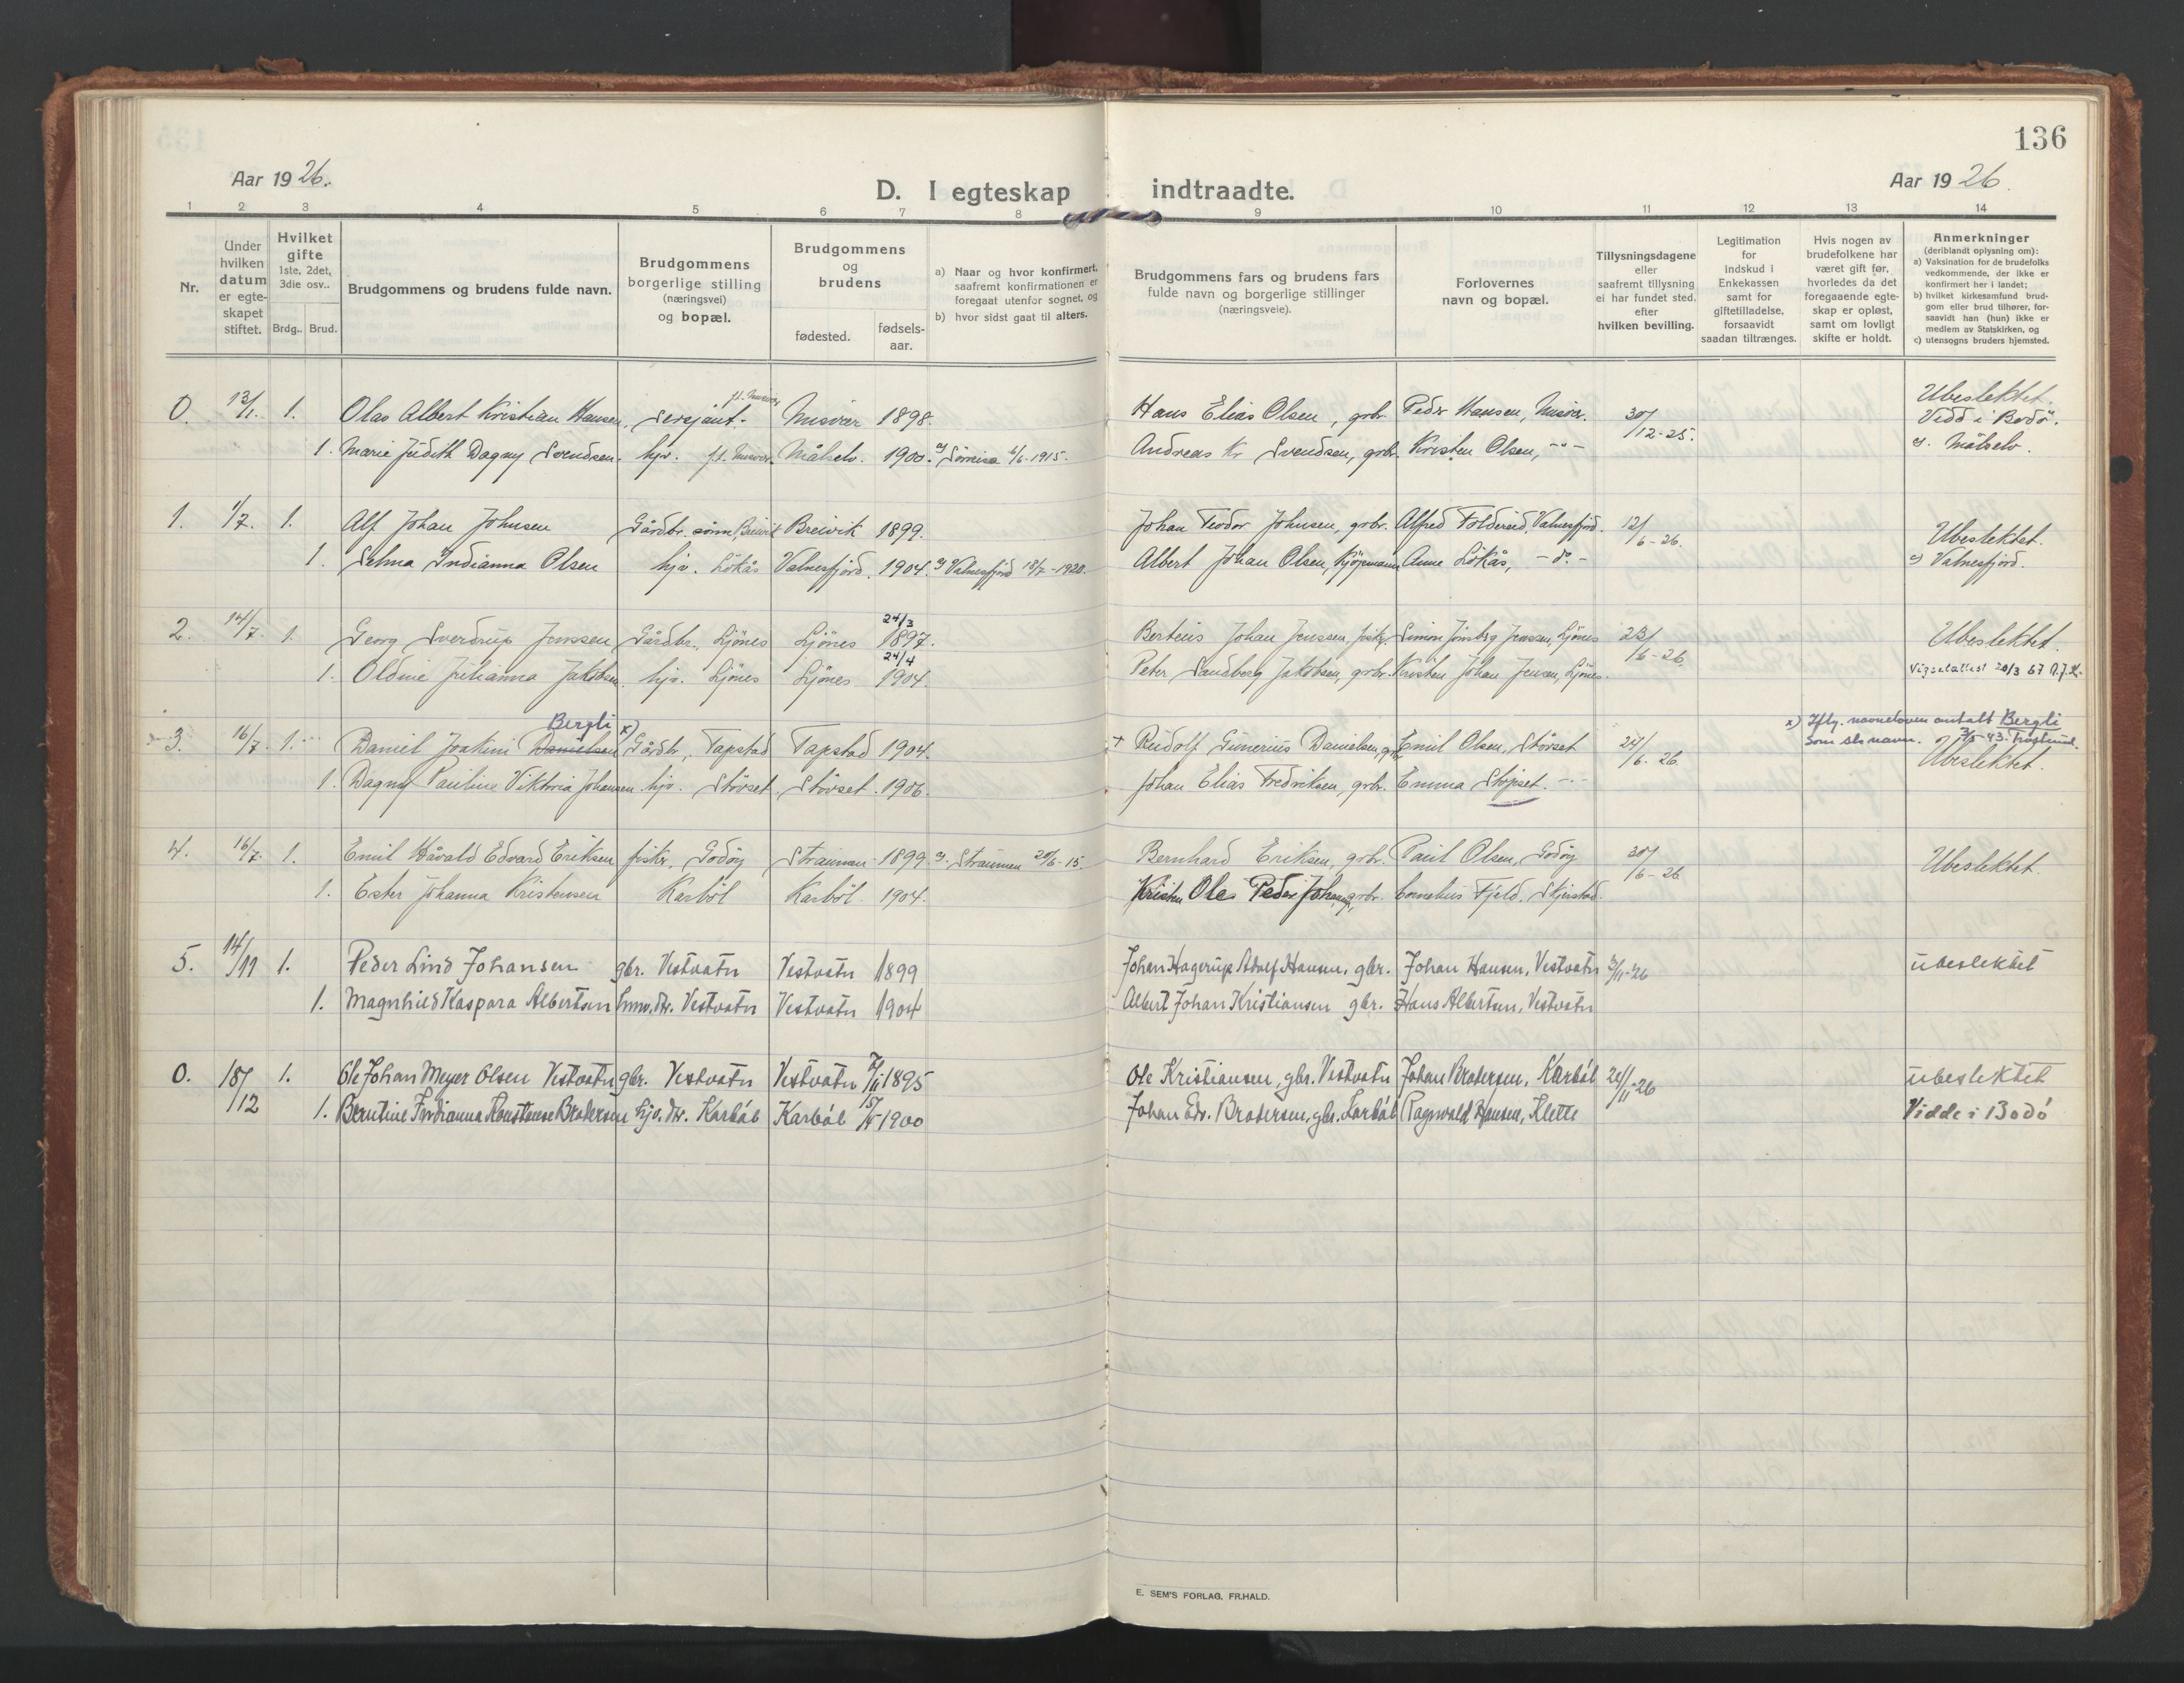 136
Aar 1926.
D. I egteskap indtraadte.
Aar 1926.
1 2 3 4 5 6 7 8 9 10 11 12 13 14
Nr.
Under hvilken datum er egteskapet stiftet.
Hvilket gifte 1ste, 2det, 3die osv..
Brdg.. Brud.
Brudgommens og brudens fulde navn.
Brudgommens borgerlige stilling (næringsvei) og bopæl.
Brudgommens og brudens
fødested. fødsels-aar.
a) Naar og hvor konfirmert, saafremt konfirmationen er foregaat utenfor sognet, og
b) hvor sidst gaat til alters.
Brudgommens fars og brudens fars fulde navn og borgerlige stillinger (næringsveie).
Forlovernes navn og bopæl.
Tillysningsdagene eller saafremt tillysning ei har fundet sted, efter hvilken bevilling.
Legitimation for indskud i Enkekassen samt for giftetilladelse, forsaavidt saadan tiltrænges.
Hvis nogen av brudefolkene har været gift før, hvorledes da det foregaaende egteskap er opløst, samt om lovligt skifte er holdt.
Anmerkninger (deriblandt oplysning om):
a) Vaksination for de brudefolks vedkommende, der ikke er konfirmert her i landet;
b) hvilket kirkesamfund brudgom eller brud tilhører, forsaavidt han (hun) ikke er medlem av Statskirken, og
c) utensogns bruders hjemsted.
0. 13/1. 1. Olas Albert Kristian Hansen, Sersjant. f.t. Misvær Misvær 1898. Hans Elias Olsen, grbr. Peder Hansen, Misvær. 30/12-25. Ubeslektet. Vidd i Bodö.
1. Marie Judith Dagny Svendsen. hjv. f.t. Misvær. Målselv. 1900. a) 6/6-1915. Andreas Kr. Svendsen, grbr. Kristen Olsen, -"- c). Målselv.
1. 1/7. 1. Alf Johan Johnsen Gårdbr. sönn, Breivik Breivik 1899. Johan Teodor Johnsen, grbr. Alfred Foldereid, Valnesfjord. 12/6-26. Ubeslektet.
1. Selma Indianna Olsen hjv. Lökås Valnesfjord. 1904. a) Valnesfjord 18/7-1920. Albert Johan Olsen, Kjöpmann Anne Lökås, -do- c) Valnesfjord.
2. 14/7. 1. Georg Sverdrup Jenssen Gårdbr. Ljönes Ljönes 24/3 1897. Berteus Johan Jenssen, fisker, Simon Jönsberg Jenssen, Ljönes 23/6-26. Ubeslektet.
1. Oldine Julianna Jakobsen. hjv. Ljönes Ljönes 24/4 1904. Peter Sandberg Jakobsen, grbr. Kristen Johan Jensen, Ljönes. Vigselattest 20/3 67 A.J.K.
3. 16/7. 1. Daniel Joakim Danielsen Bergli x) Gårdbr., Tapstad Tapstad 1904. + Rudolf Gunerius Danielsen, grbr. Emil Olsen, Störset 24/6-26. x) Iflg. navneloven antatt Bergli som sl.navn. 3/5-43. Ubeslektet.
1. Dagny Pauline Viktoria Johansen. hjv. Störset. Störset. 1906. Johan Elias Fredriksen, grbr. Emma Störset. -"-
4. 16/7. 1. Emil Håvald Edvard Eriksen fisker, Godöy Straumen 1899. a). Straumen 20/6-15. Bernhard Eriksen, grbr. Paul Olsen, Godöy 30/6-26. Ubeslektet.
1. Ester Johanna Kristensen Karböl Karböl. 1904. Kristen Ole Peder Johansen, grbr. Cornelius Fjeld, Skjerstad.
5. 14/11 1. Peder Lind Johansen gbr. Vestvatn Vestvatn 1899 Johan Hagerup Adolf Hansen, gbr. Johan Hansen, Vestvatn 3/11-26 ubeslektet
1. Magnhild Kaspara Albertsen Vestvatn Vestvatn 1904 Albert Johan Kristiansen gbr. Hans Albertsen, Vestvatn
0. 18/12 1. Ole Johan Meyer Olsen Vestvatn gbr. Vestvatn Vestvatn 1895 Ole Kristiansen, gbr. Vestvatn Johan Brodersen, Karböl 24/11-26 ubeslektet
1. Berntine Indianna Konstanse Brodersen hjv. dtr. Karböl Karböl 1900 Johan Edv. Brodersen, gbr. Karböl Ragnvald Hansen, Klette Vidde i Bodö
E. SEM'S FORLAG, FR.HALD.